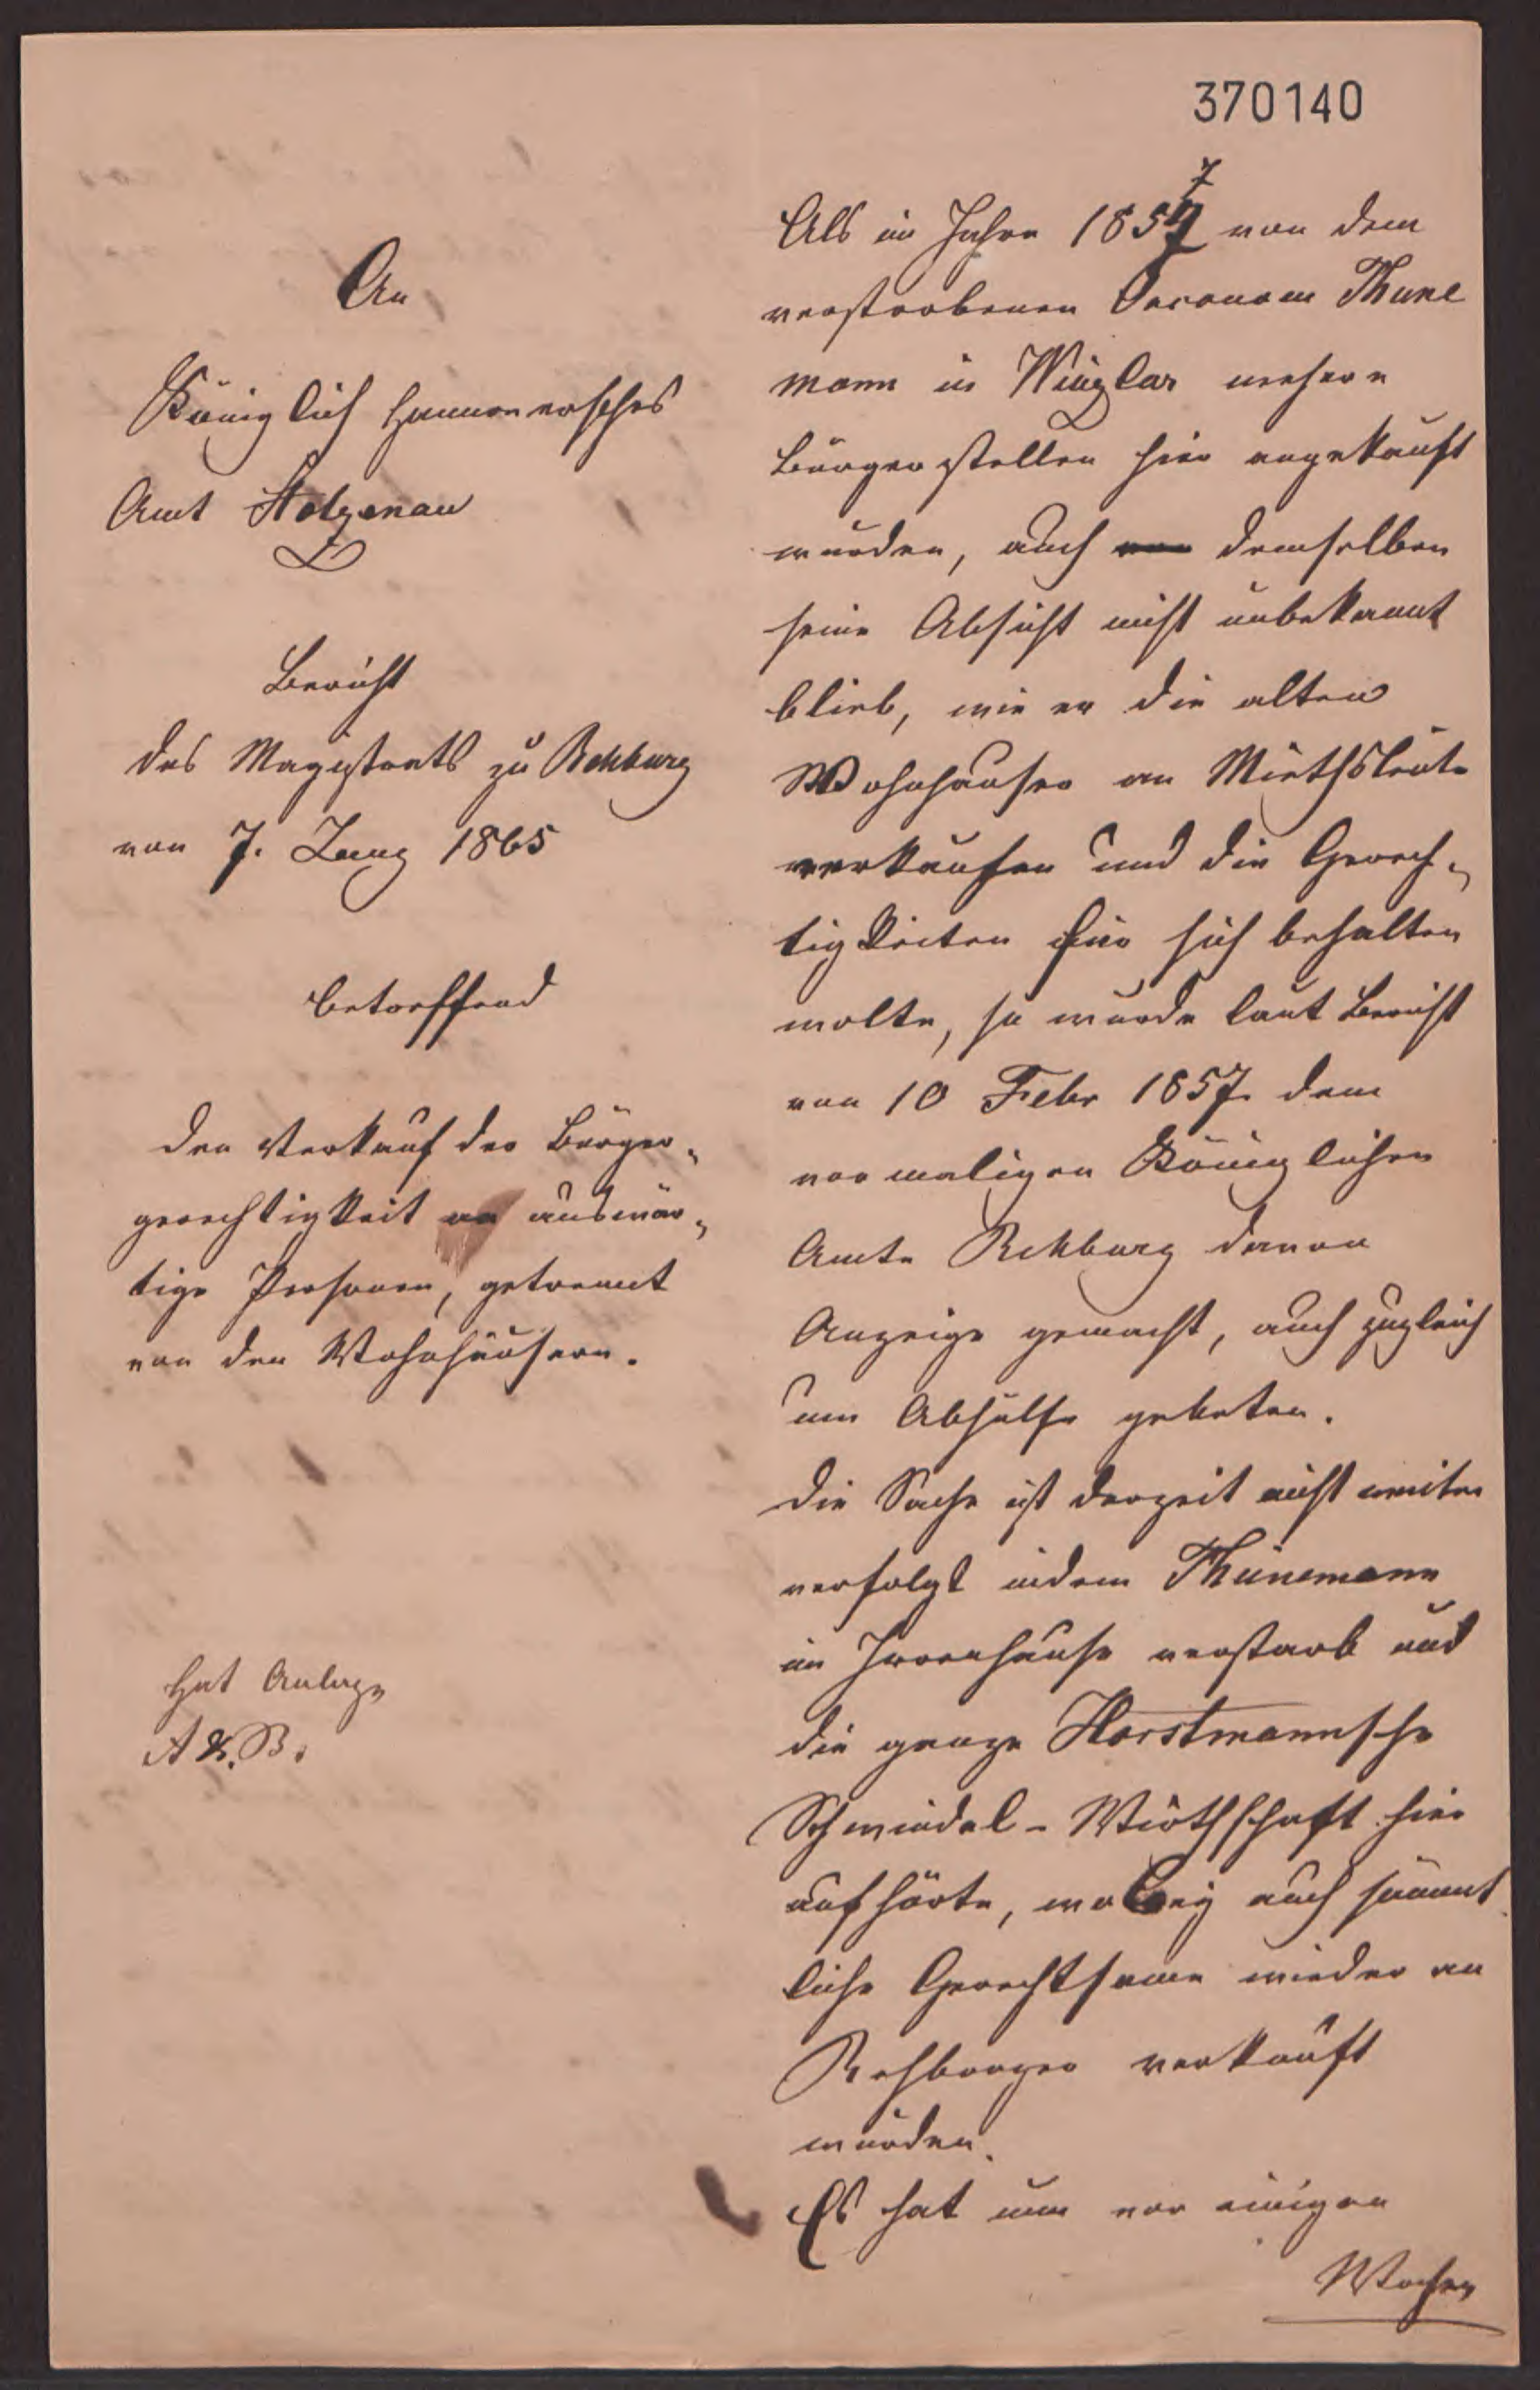 370140
An
Königlich Hannoversches
Amt Stolzenau
Bericht
des Magistrats zu Rehburg
von 7. Juny 1865
betreffend
den Verkauf der Bürger-
gerechtigkeit an auswär-
tige Personen, getrennt
von den Wohnhäusern.
Hat Anlage
A & B.
Als im Jahre 1857 von dem
verstorbenen Oeconom Thüne
mann in Winzlar mehere
Bürgerstellen hier angekauft
wurden, auch von demselben
seine Absicht nicht unbekannt
blieb, wie er die alten
Wohnhäuser an Miethsleute
verkaufen und die Gerech-
tigkeiten für sich behalten
wolte, so wurde laut Bericht
von 10 Febr 1857 dem
vormaligen Königlichen
Amte Rehburg davon
Anzeige gemacht, auch zugleich
um Abhülfe gebeten.
Die Sache ist derzeit nicht weiter
verfolgt indem Thünemann
im Irrenhause verstarb und
die ganze Horstmannsche
Schwindel-Wirthschaft hier
aufhörte, wobey auch sämmt
liche Gerechtsame wieder an
Rehburger verkauft
wurden.
Es hat nun vor einigen
Wochen